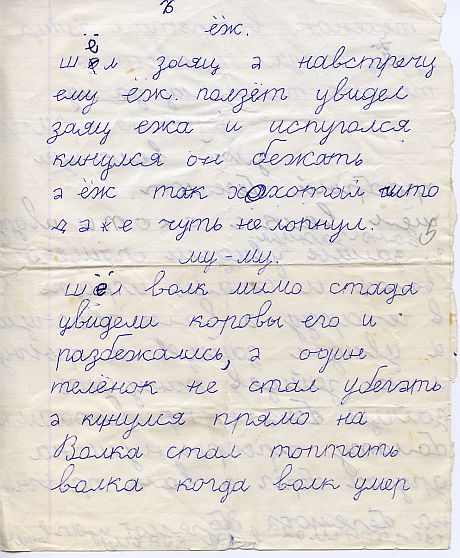 ёж.
шёл заяц а навстречу
ему ёж. ползёт увидел
заяц ежа и испугался
кинулся он бежать
а ёж так хохотал что
даже чуть не лопнул.
му-му.
шёл волк мимо стада
увидели коровы его и
разбежались, а один
телёнок не стал убегать
а кинулся прямо на
Волка стал топтать
волка когда волк умер